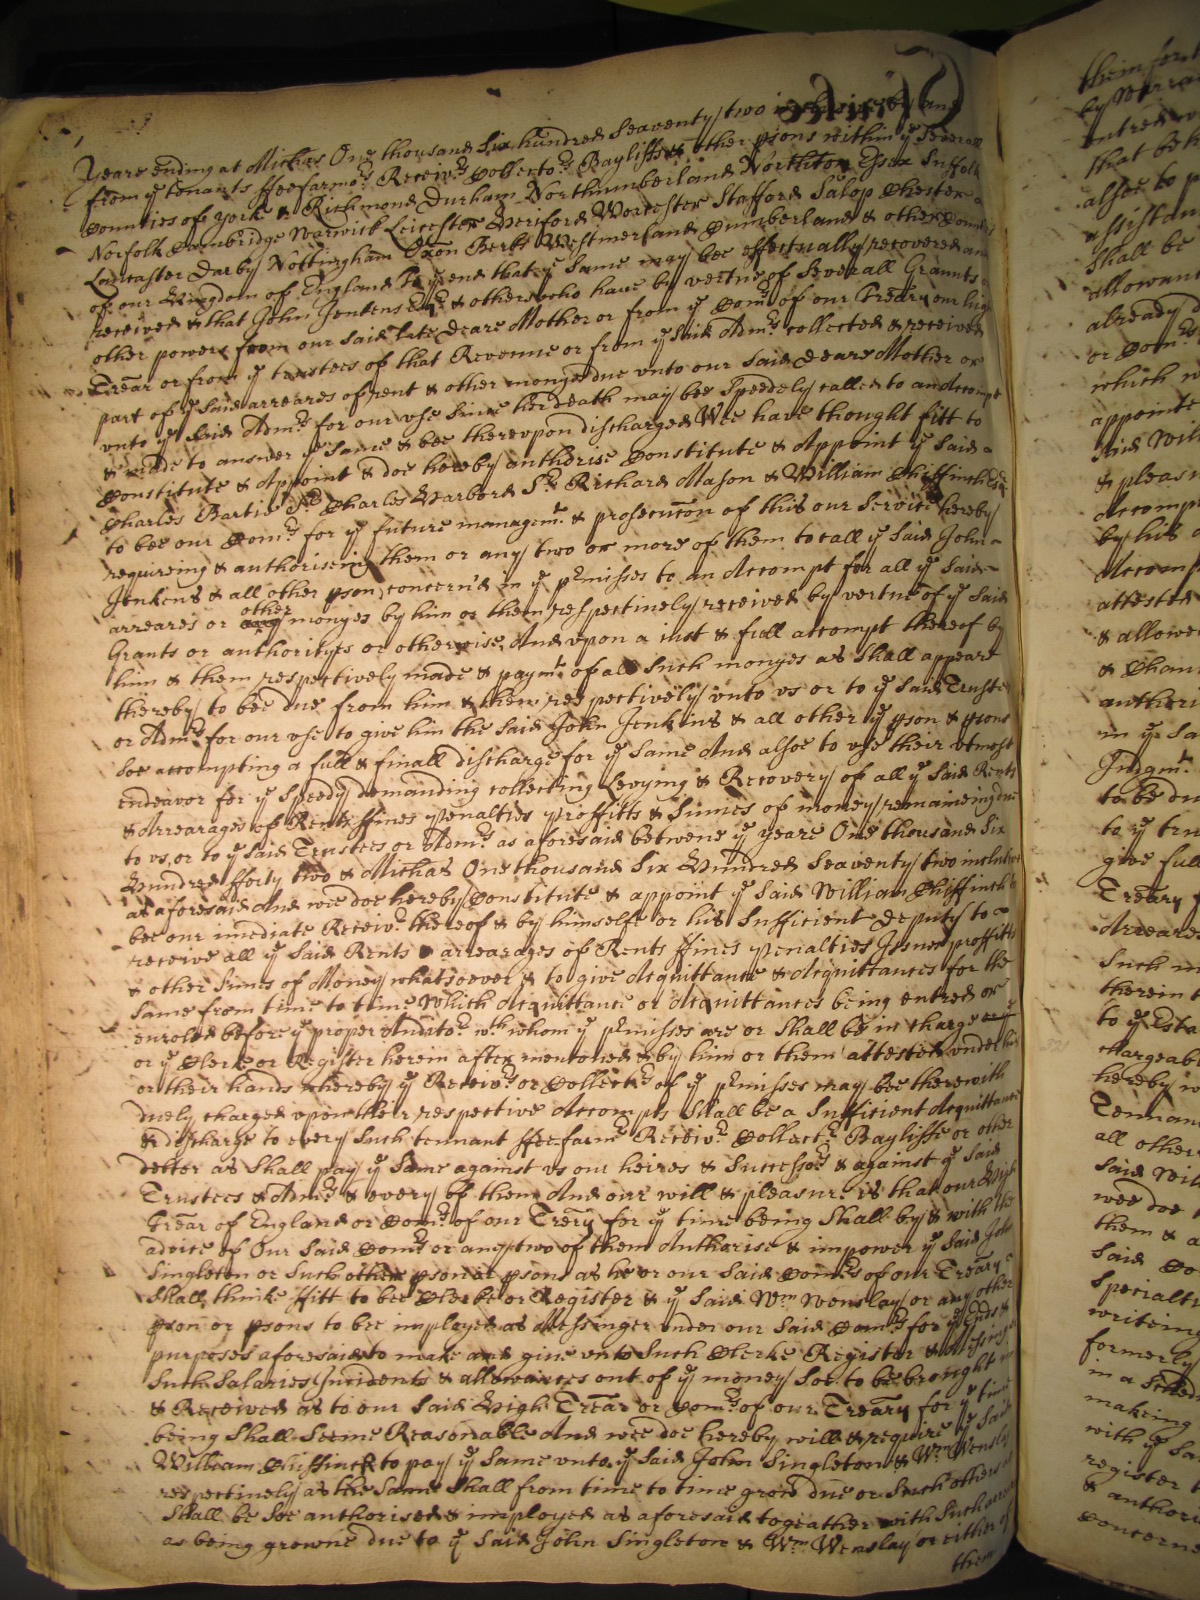 Yeare ending at Michās One thousand Six hundred Seaventy two inclusive by and
from ye tenants ffeefarmors Receivrs Collectors Bayliffs & other psons within ye Severall
Counties of Yorke & Richmond Durham Northumberland Northton Essex Suffolk
Norfolk Cambridge Warwick Leicester Hertford Worcester Stafford Salop Chester
Lancaster Darby Nottingham Oxon Berks Westmerland Cumberland & other Counties
of our Kingdom of England To ye end that ye Same may bee effectually recovered and
received & that John Jenkens Esqr & others who have by vertue of Severall Graunts or
other powers from our said late deare Mother or from ye Comrs of our Treāry our high
Treār or from ye trustees of that Revenue or from ye Said Admrs collected & received
part of ye said arreares of rent & other monyes due vnto our Said Deare Mother or
vnto ye Said Admrs for our vse Since her death may bee Speedely called to an Accompt
& made to answer ye Same & bee therevpon discharged Wee have thought fitt to
Constitute & Appoint & doe hereby authorise Constitute & Appoint ye Said
Charles Bartie Sr Charles Harbord Sr Richard Mason & William Chiffinch Esqr
to bee our Comrs for ye future managemt & prosecucōn of this our Service hereby
requireing & authoriseing them or any two or more of them to call ye Said John
Jenkens & all other pson concern'd in ye pmisses to an Accompt for all ye Said
arreares or other monyes by him or them respectively received by vertue of ye Said
Grants or authorityes or otherwise, And vpon a iust & full accompt thereof by
him & them respectively made & paymt of all Such monyes as shall appeare
thereby to bee due from him & them respectively vnto vs or to ye Said Trustees
or Admrs for our vse to give him the Said John Jenkins & all other ye pson & psons
soe accompting a full & finall discharge for ye Same And alsoe to vse their vtmost
endeavor for ye Speedy demanding collecting Levying & Recovery of all ye Said Rents
& Arrearages of Rents ffines Penalties Proffitts & Sumes of money remaineing due
to vs or to ye Said Trustees or Admrs as aforesaid betweene ye yeare One thousand Six
Hundred fforty two & Michās One thousand Six Hundred Seaventy two inclusive
as aforesaid And wee doe hereby Constitute & appoint ye Said William Chiffinch to
bee our imediate Receivr thereof & by himselfe or his Sufficient Deputy to
receive all ye Said Rents & arrearages of Rents ffines Penalties Issues proffitts
& other Sumes of Money whatsoever & to give Acquittance & Acquittances for the
Same from time to time Which Acquittance or Acquittances being entred or
enroled before ye proper Auditor wth whom ye pmisses are or Shall be in charge
or ye Clerke or Register herein after mentoned & by him or them attested vnder his
or their hands whereby ye Receivrs or Collectrs of ye pmisses may bee therewith
duely charged vpon their respective Accompts Shall be a Sufficient Acquittance
& discharge to every Such tennant ffeefarmr Receivr Collectr Bayliffe or other
debter as Shall pay ye Same against vs our heires & Successors & against ye Said
Trustees & Admrs & every of them And our will & pleasure is that our High
Treār of England or Comrs of our Treāry for ye time being Shall by & with the
advice of Our Said Comrs or any two of them Authorise & impower ye Said John
Singleton or Such other pson or psons as he or our Said Comrs of our Treāry
Shall thinke ffitt to bee Clerke or Register & ye Said Wm Wenslay or any other
pson or psons to bee imployed as Messinger vnder our Said Comrs for ye Ends &
purposes aforesaid to make and give vnto Such Clerke Register & Messinger
Such Salaries Incidents & allowances out of ye money Soe to be brought in
& Received as to our Said High Treār or Comrs of our Treāry for ye time
being Shall Seeme Reasonable And wee doe hereby will & require ye Said
William Chiffinch to pay ye Same vnto ye Said John Singleton & Wm Wenslay
respectively as the Same Shall from time to time grow due or Such others as
Shall be Soe authorised & imployed as aforesaid togeather with Such arreares
as being growne due to ye Said John Singleton & Wm Wenslay or either of
them
them for
by Warra
entred
that be
alsoe to p
assistan
Shall be
allowan
already
or Comrs
which w
appointe
Said Will
& pleas
Accomp
by his
Accomp
attested
& allowe
& Chan
authori
in ye Sa
Judgmt
to be du
to ye tru
give full
Treāry
Arreares
Such m
therein
to ye Esta
chargeab
hereby w
Tennan
all other
Said Wil
wee doe
them & a
Said Co
Specialti
writeing
formerly
in a Sched
makeing
with ye Sa
register
& authori
Concerne